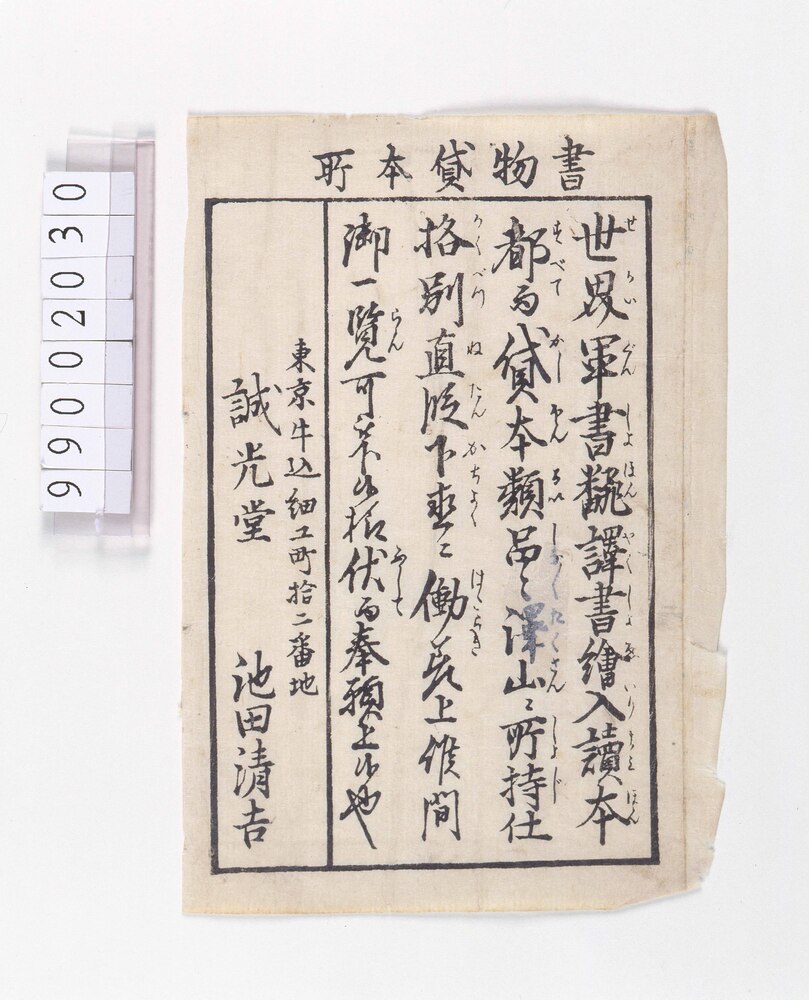 書物貸本所
世界軍書飜譯書繪入讀本
都而貸本類品々澤山ニ所持仕
格別直段下直ニ働差上候間
御一覧可被下候様伏而奉願上候也
東京牛込細工町拾二番地
誠光堂 池田清吉
99002030